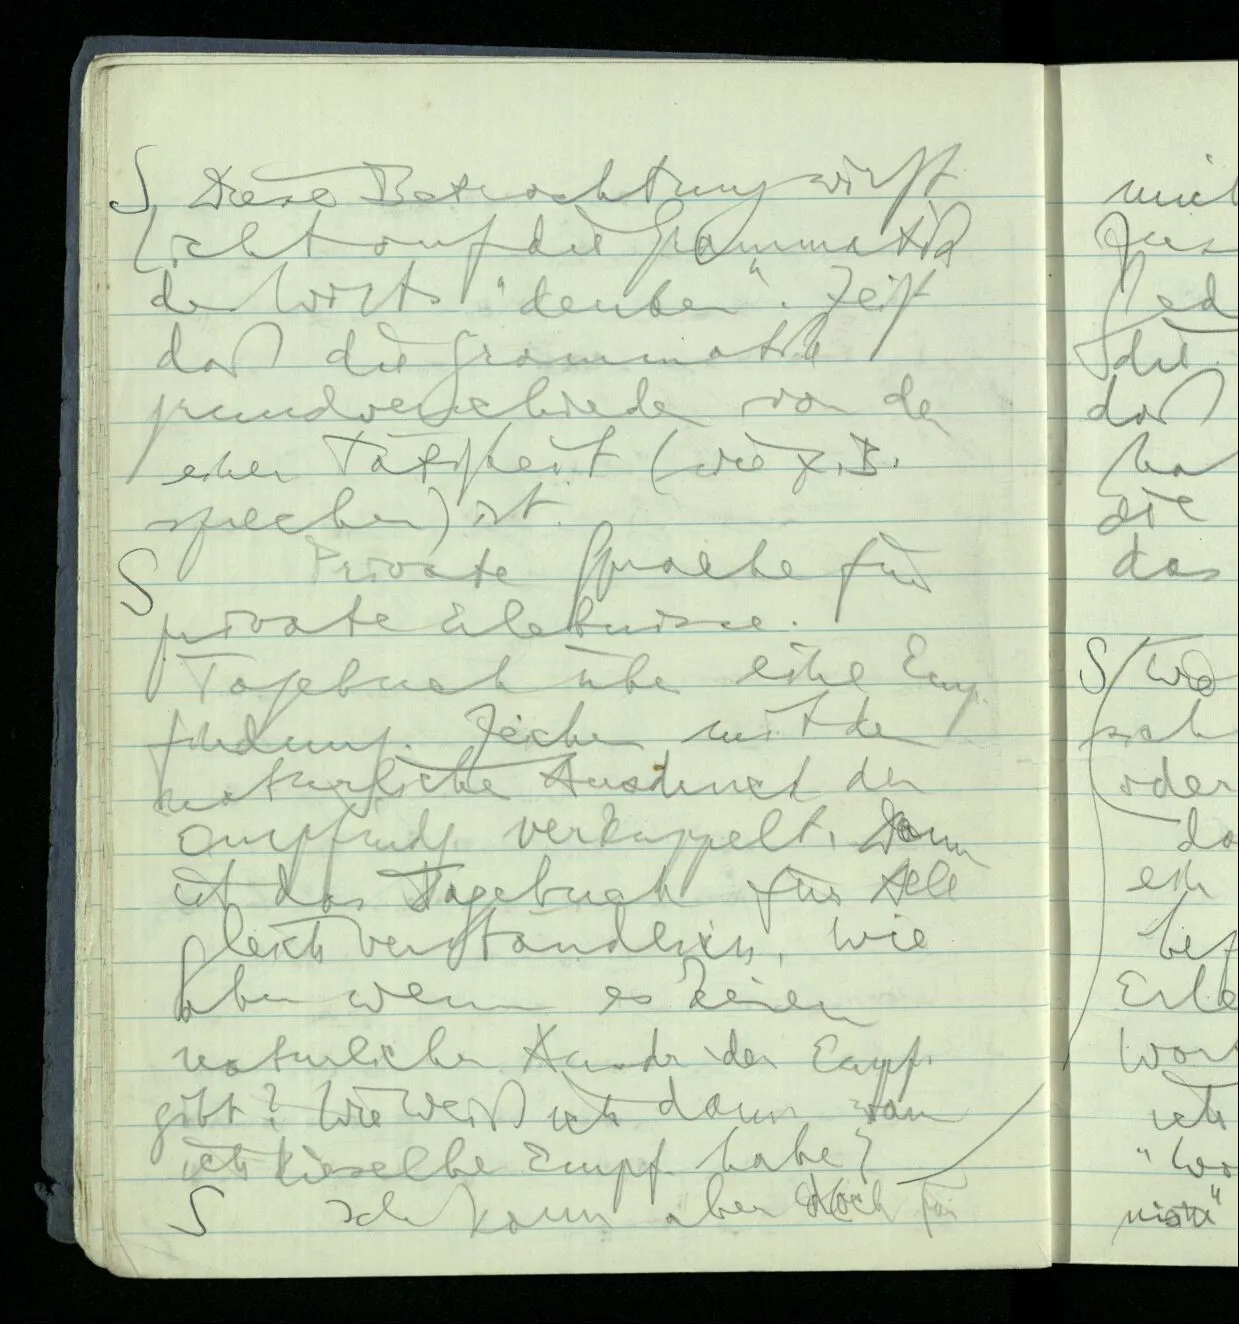 S Diese Betrachtung wirft
Licht auf die Grammatik
des Worts "denken". Zeigt
daß die Grammatik
grundverschieden von der
einer Tätigkeit (wie z.B.
sprechen) ist.
S Private Sprache für
private Erlebnisse.
Tagebuch über eine Emp-
findung. Zeichen mit dem
natürlichen Ausdruck der
Empfindg. verkuppelt. Dann
ist das Tagebuch für Alle
gleich verständlich, wie
aber wenn es keinen
natürlichen Ausdr. der Empf.
gibt? Wie weiß ich dann wann
ich dieselbe Empf. habe?
S Ich kann aber doch für
mich
die
daß
die
das
S
oder
ein
ich